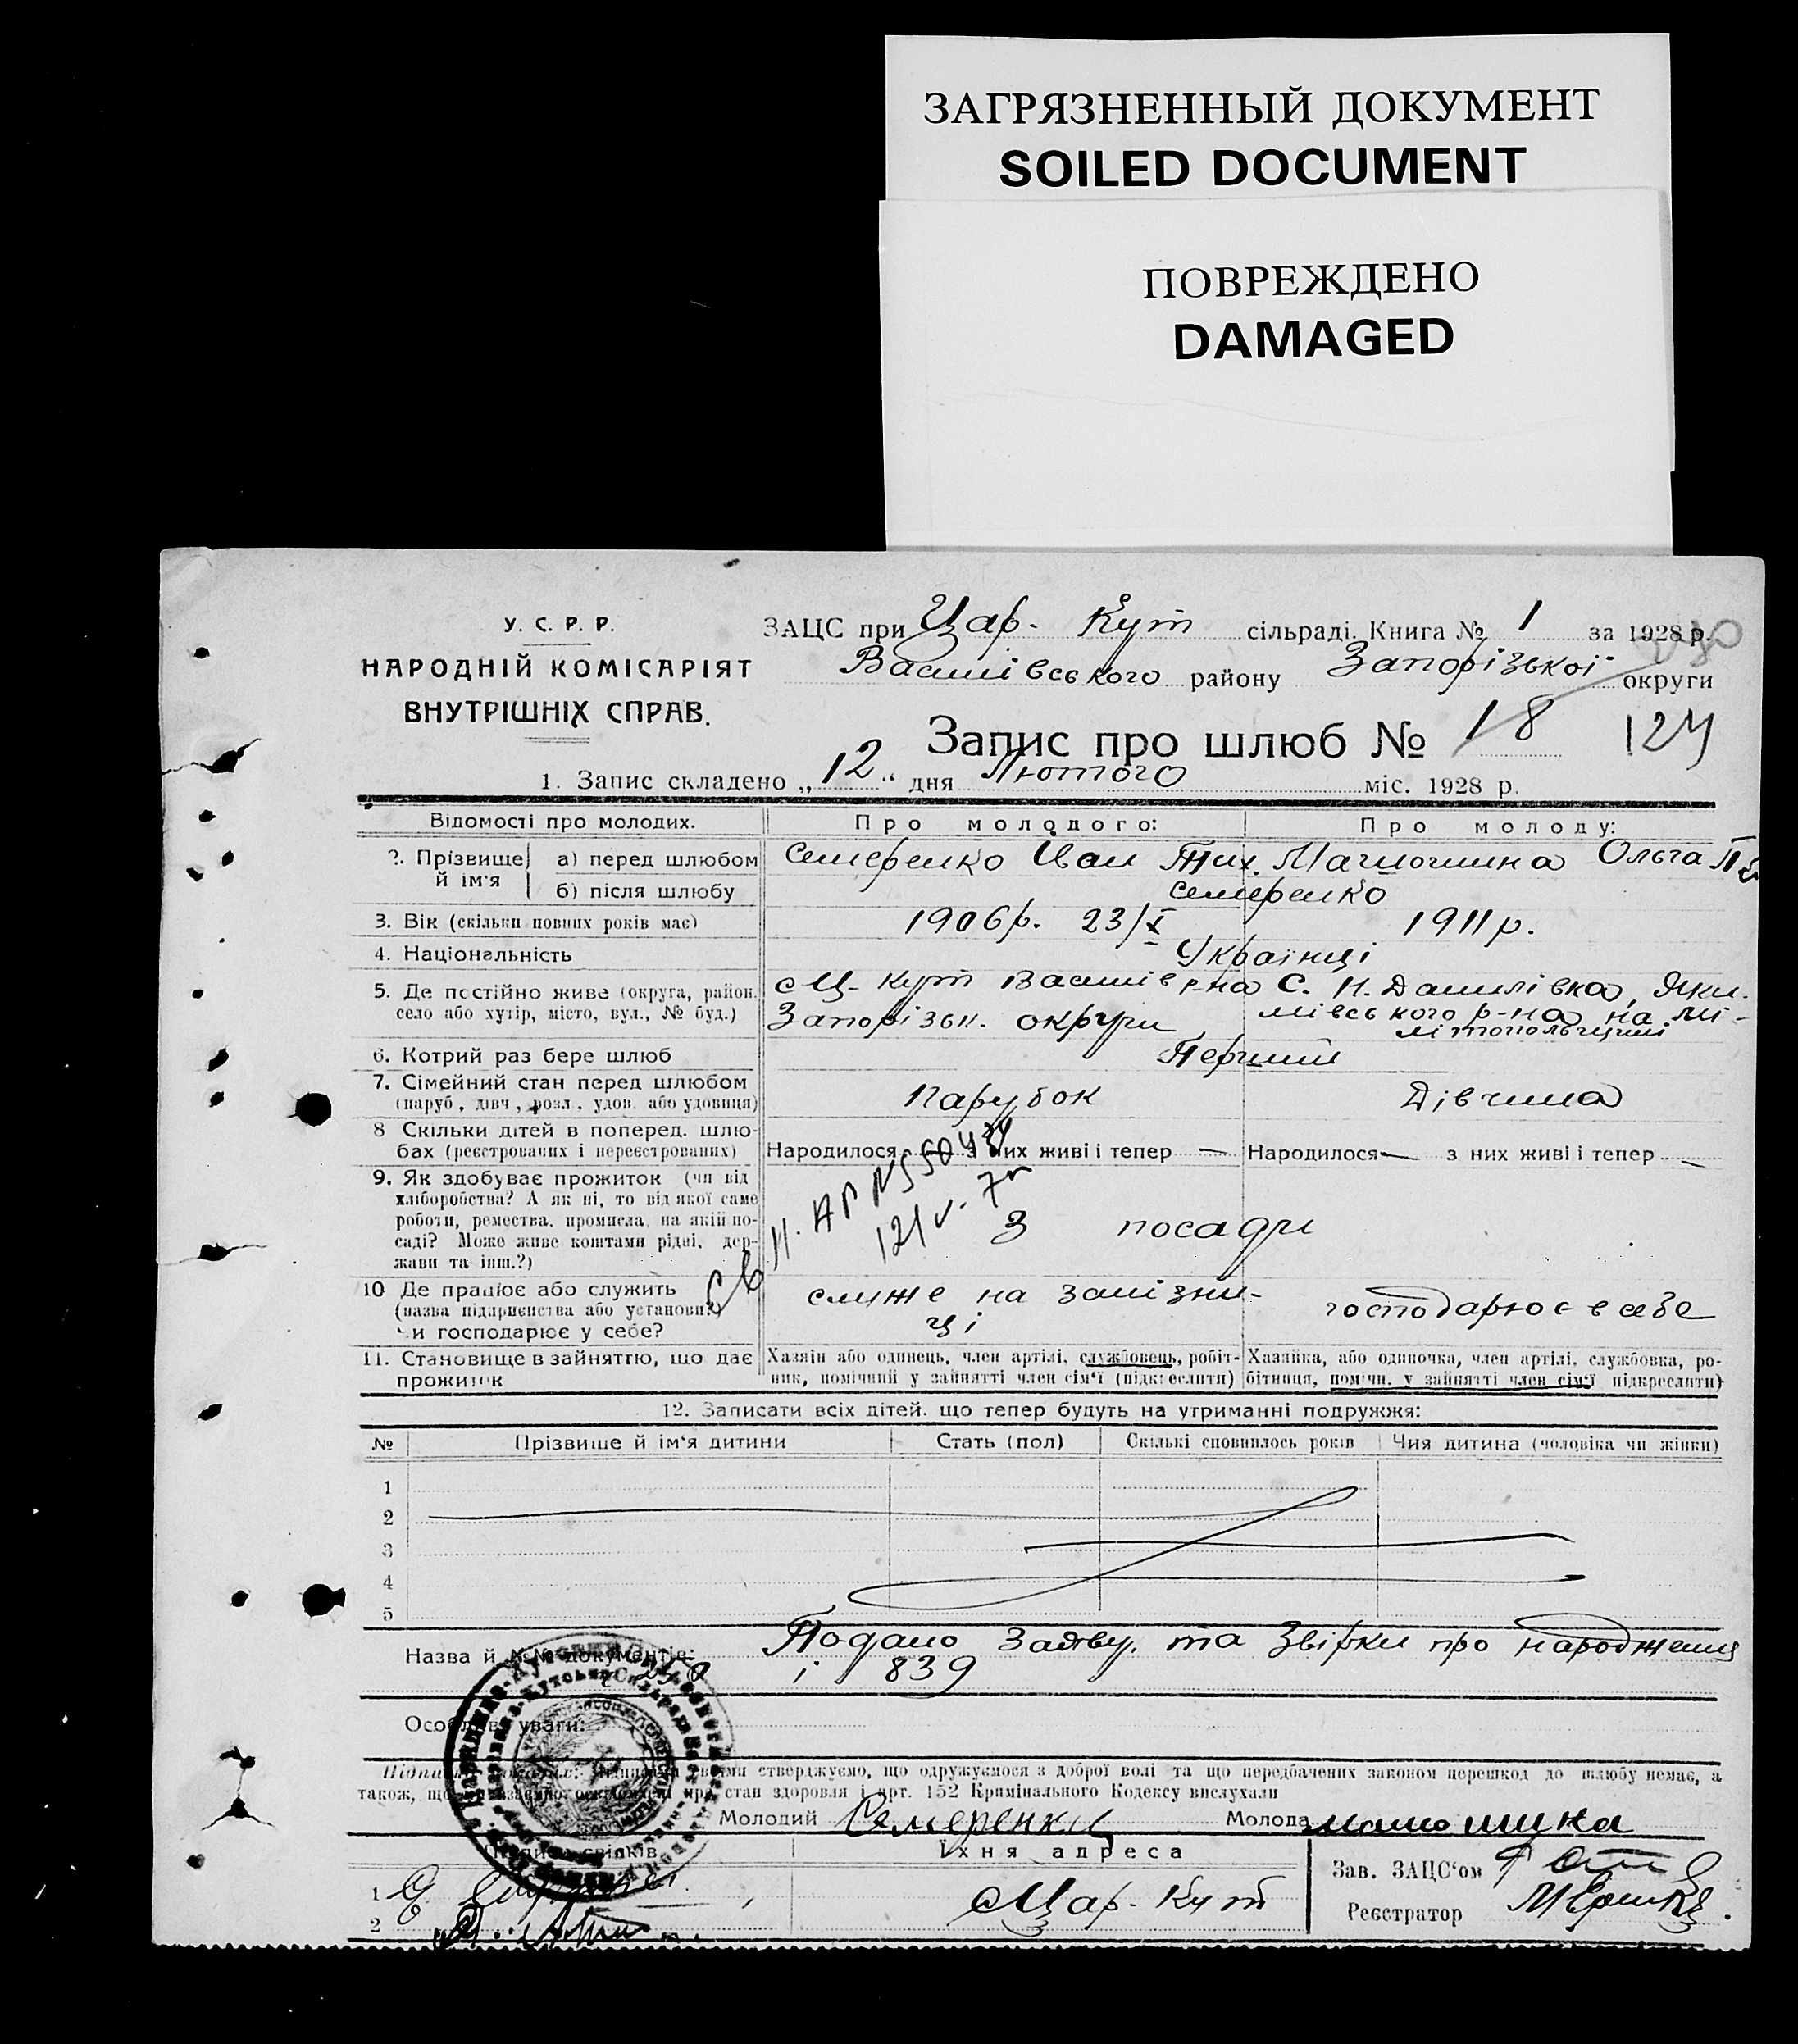 ЗАГРЯЗНЕННЫЙ ДОКУМЕНТ
SOILED DOCUMENT
ПОВРЕЖДЕНО
DAMAGED
У. С. Р. Р.
НАРОДНІЙ КОМІСАРІЯТ
ВНУТРІШНІХ СПРАВ.
ЗАЦС при Цар. Кут сільраді. Книга № 1 за 1928 р.
Василівського району Запорізької округи
Запис про шлюб № 18 124
1. Запис складено „ 12 “ дня Лютого міс. 1928 р.
Відомості про молодих. Про молодого: Про молоду:
2. Прізвище й ім'я а) перед шлюбом Семеренко Іван Тих. Ольга
б) після шлюбу Семеренко
3. Вік (скільки повних років має) 1906 р. 23/X 1911 р.
4. Національність Українці
5. Де постійно живе (округа, район, с Ц-Кут Василів р-на С. Н. Данилівка, Яки-
село або хутір, місто, вул., № буд.) Запорізьк. округи мівського р-на на Мі-
літопольщині
6. Котрий раз бере шлюб Перший
7. Сімейний стан перед шлюбом Парубок Дівчина
(паруб., дівч., розл., удов. або удовиця)
8 Скільки дітей в поперед. шлю-
бах (реєстрованих і нереєстрованих) Народилося — з них живі і тепер — Народилося — з них живі і тепер —
9. Як здобуває прожиток (чи від
хліборобства? А як ні, то від якої саме
роботи, ремества, промисла, на якій по- З посади
саді? Може живе коштами рідні, дер-
жави та інш.?)
10 Де працює або служить служе на залізни-
(назва підприємства або установи?) ці господарює в себе
чи господарює у себе?
11. Становище в зайняттю, що дає Хазяїн або одинець, член артілі, службовець, робіт- Хазяйка, або одиночка, член артілі, службовка, ро-
прожиток ник, помічний у зайнятті член сім'ї (підкреслити) бітниця, помічн. у зайнятті член сім'ї підкреслити)
12. Записати всіх дітей, що тепер будуть на утриманні подружжя:
№ Прізвище й ім'я дитини Стать (пол) Скількі сповнилось років Чия дитина (чоловіка чи жінки)
1
2
3
4
5
Назва й №№ документів: Подано Заяву, та Звірки про народження
і 839
Особливі уваги:
стверджуємо, що одружуємося з доброї волі та що передбачених законом перешкод до шлюбу немає, а
також, що стан здоровля і арт. 152 Кримінального Кодексу вислухали
Молодий Семеренко Молода
Підписи свідків Їхня адреса
Зав. ЗАЦС'ом
1
с Цар. Кут
Реєстратор
2